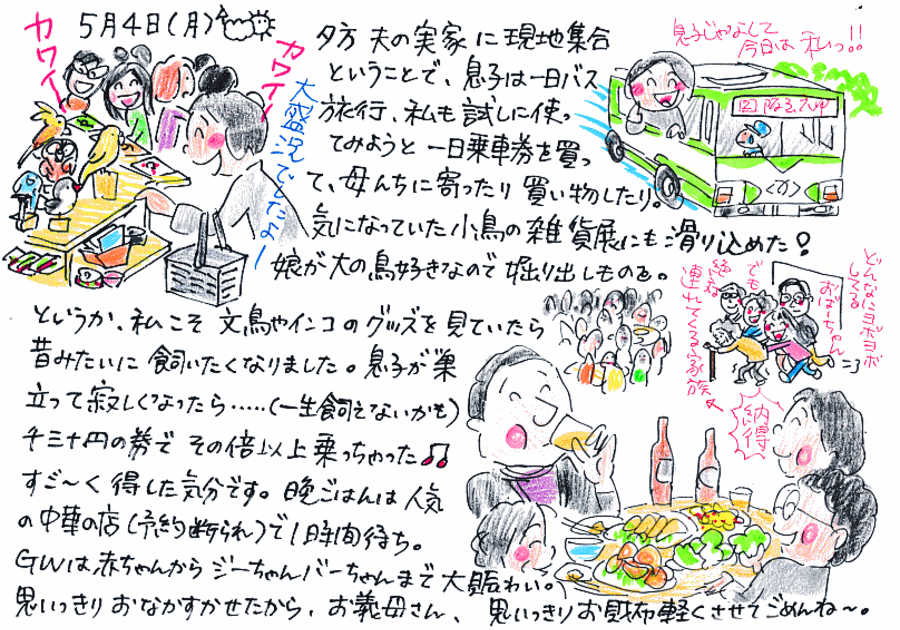 5月4日(月)
カワイー
カワイー
大盛況でしたよー
息子じゃなくして
今日は私っ!!
夕方 夫の実家に現地集合
ということで、息子は一日バス
旅行、私も試しに使っ
てみようと一日乗車券を買っ
て、母んちに寄ったり買い物したり。
気になっていた小鳥の雑貨展にも滑り込めた!
娘が大の鳥好きなので掘り出しものを。
というか、私こそ 文鳥やインコのグッズを見ていたら
昔みたいに飼いたくなりました。息子が巣
立って寂しくなったら……(一生飼えないかも)
千三十円の券で その倍以上乗っちゃった♫
すご〜く得した気分です。晩ごはんは人気
の中華の店(予約断られ)で1時間待ち。
GWは赤ちゃんからジーちゃんバーちゃんまで大賑わい。
思いっきりおなかすかせたから、お義母さん、思いっきりお財布軽くさせてごめんね〜。
どんなにヨボヨボ
してる
おばーちゃん
でも
連れてくる家族
納得